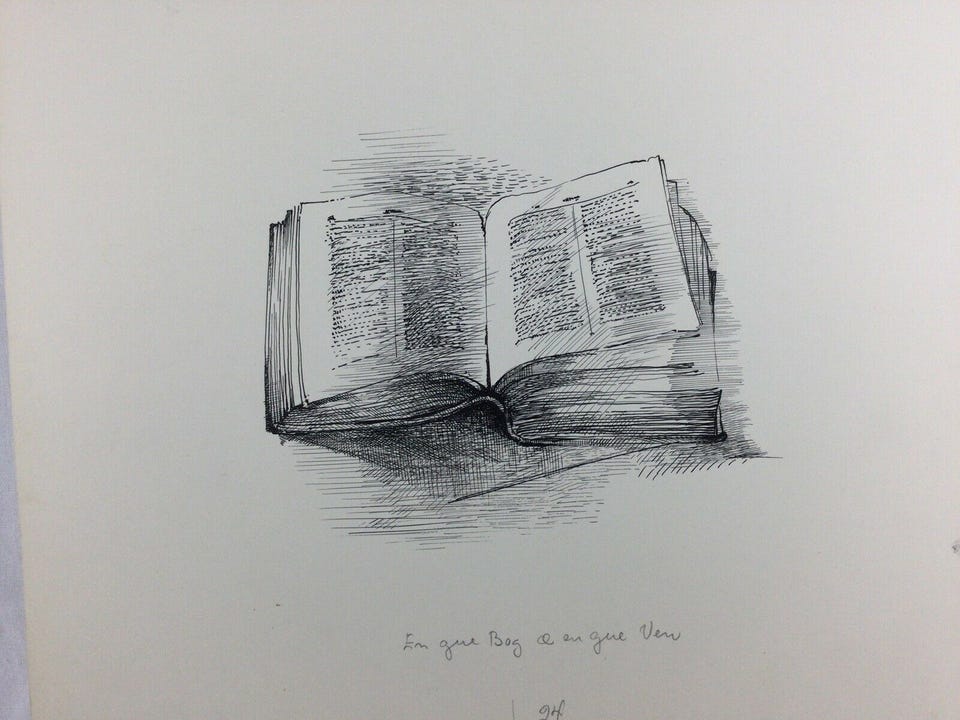 En gue Bog æ en gue Ven
94